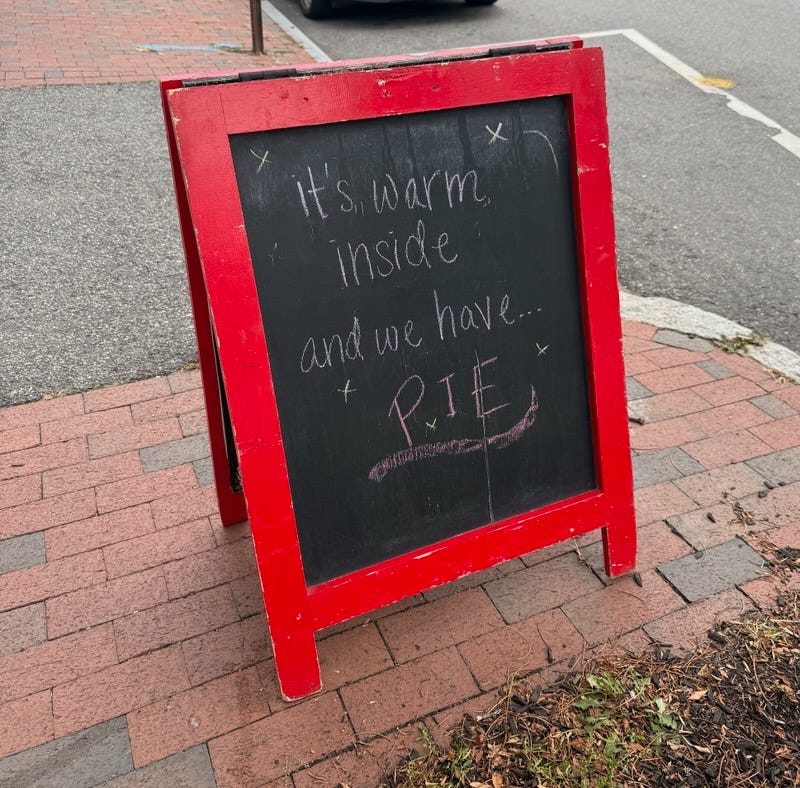 it's warm
inside
and we have...
PIE